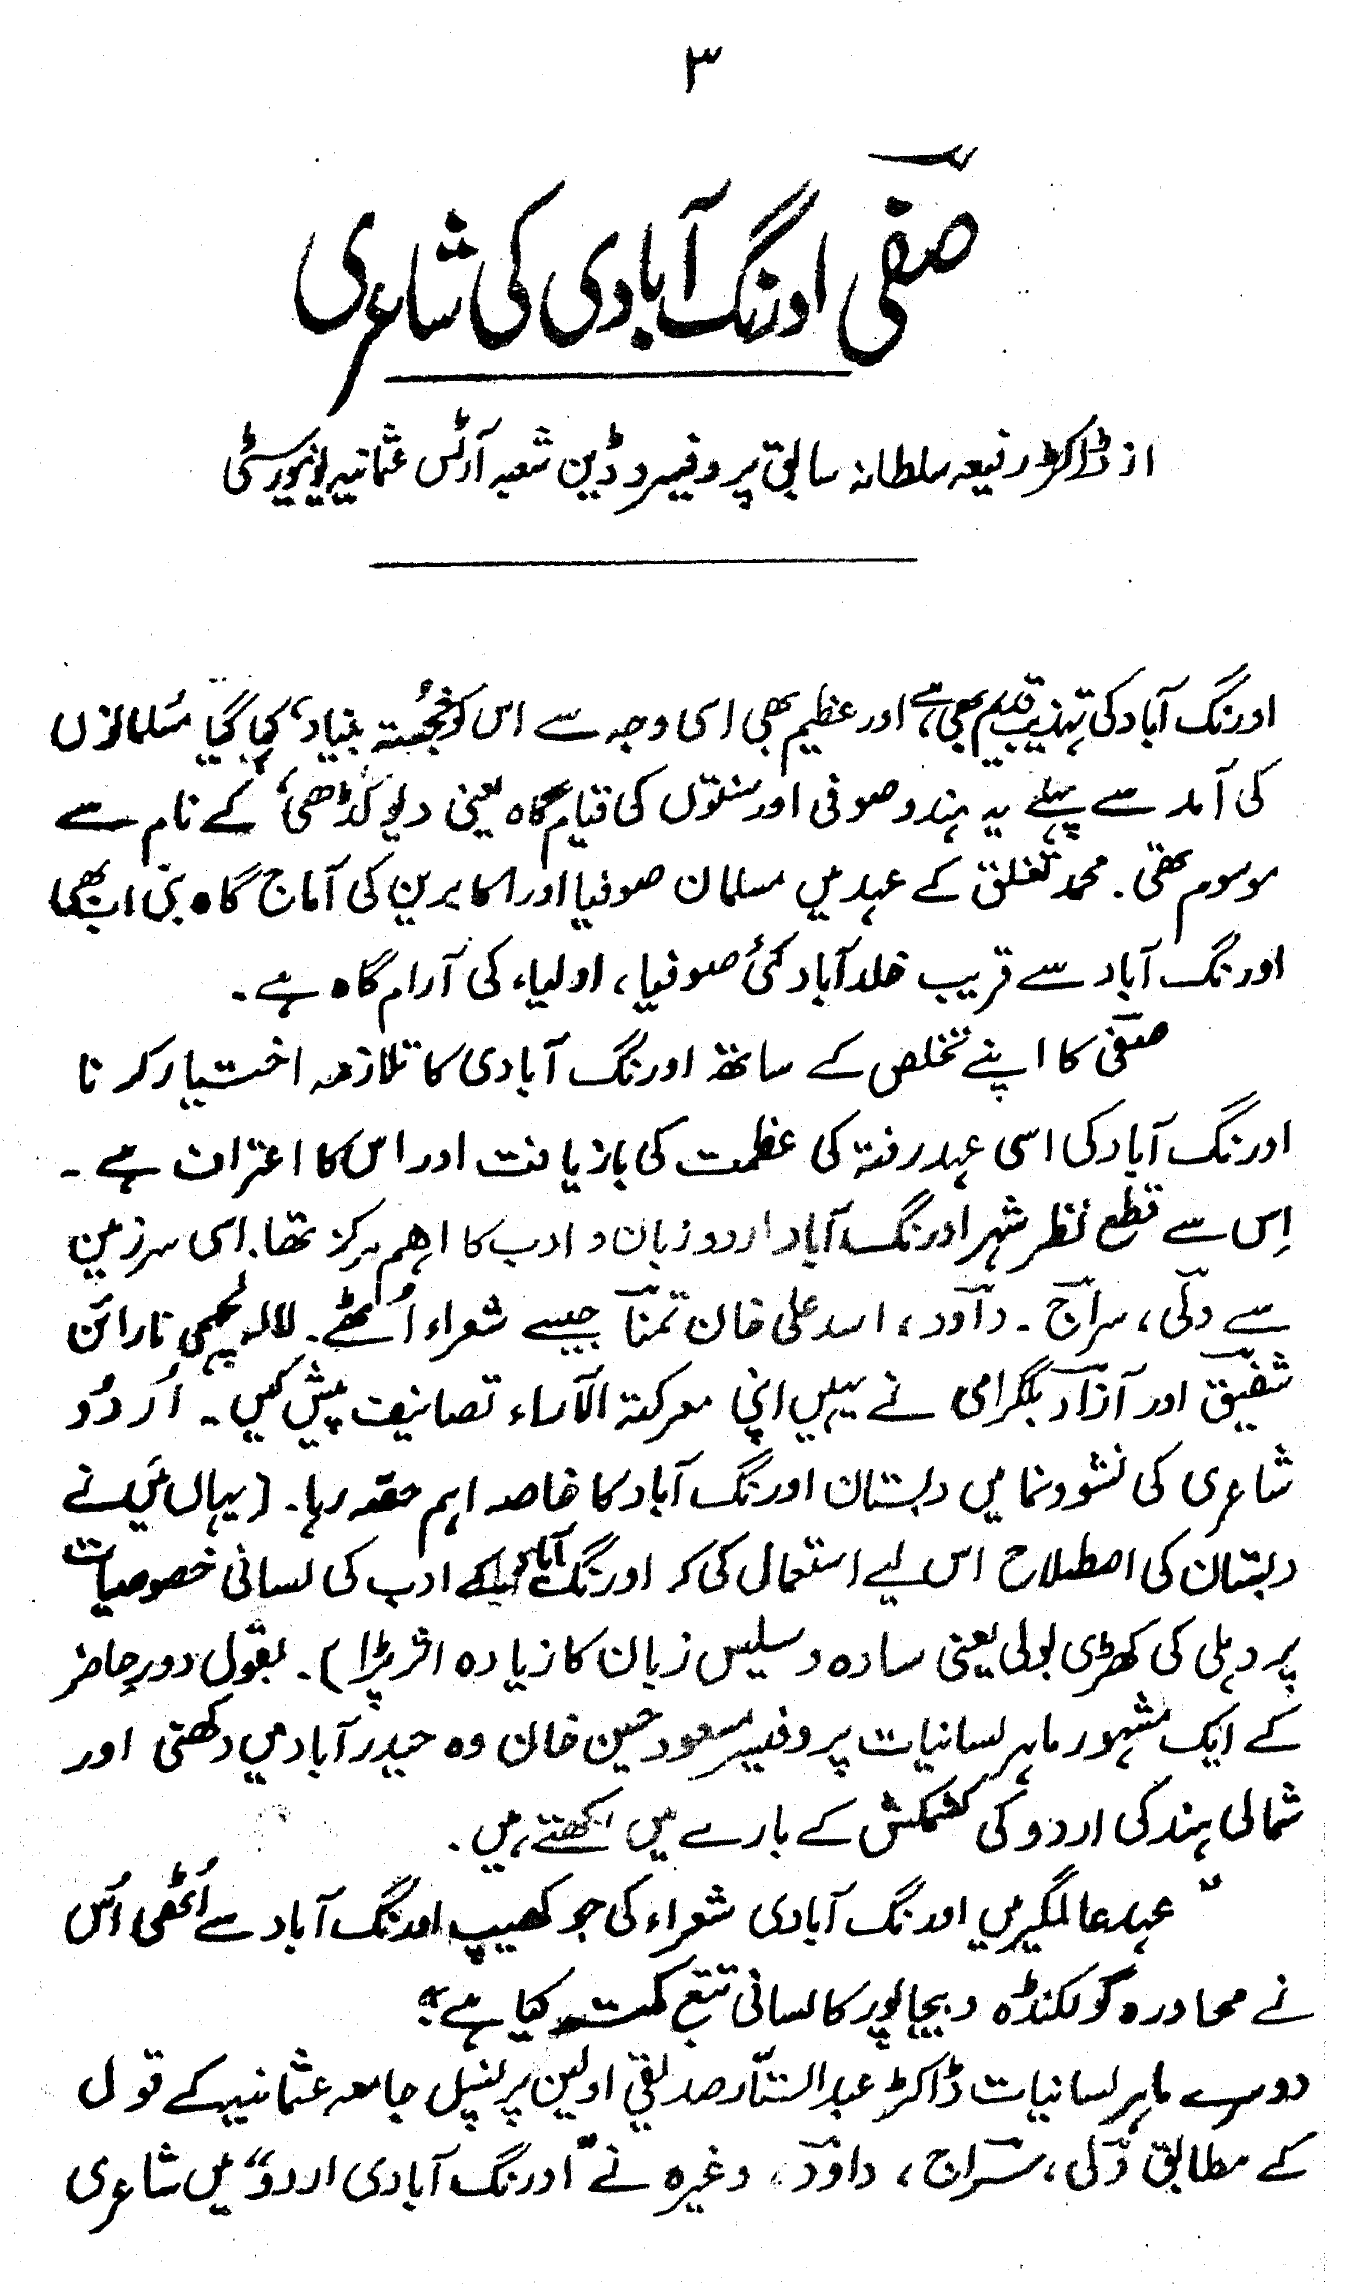 ۳
صفیؔ اورنگ آبادی کی شاعری
از ڈاکٹر رفیعہ سلطانہ سابق پروفیسر و ڈین شعبہ آرٹس عثمانیہ یونیورسٹی
اورنگ آباد کی تہذیب قدیم بھی ہے، اور عظیم بھی اسی وجہ سے اس کو ’خجستہ بنیاد‘ کہا گیا مسلمانوں
کی آمد سے پہلے یہ ہندو صوفی اور سنتوں کی قیام گاہ یعنی دیو کڈھی‘ کے نام سے
موسوم تھی۔ محمد تغلق کے عہد میں مسلمان صوفیا اور اکابرین کی آماج گاہ بنی اب بھی
اورنگ آباد سے قریب خلد آباد کئی صوفیا، اولیاء کی آرام گاہ ہے۔
صفیؔ کا اپنے تخلص کے ساتھ اورنگ آبادی کا تلازمہ اختیار کرنا
اورنگ آباد کی اسی عہد رفتہ کی عظمت کی بازیافت اور اس کا اعتراف ہے۔
اِس سے قطع نظر شہر اورنگ آباد اردو زبان و ادب کا اھم مرکز تھا۔ اسی سرزمین
سے ولیؔ، سراجؔ۔ داؤدؔ، اسد علی خان تمناؔ جیسے شعراء اُٹھے۔ لالہ لچھمی نارائن
شفیقؔ اور آزادؔ بلگرامی نے یہیں اپنی معرکتہ الآراء تصانیف پیش کیں۔ اُردُو
شاعری کی نشوونما میں دبستان اورنگ آباد کا خاصہ اہم حصّہ رہا۔ (یہاں میں نے
دبستان کی اصطلاح اس لیے استعمال کی کہ اورنگ آباد کے ادب کی لسانی خصوصیات
پر دہلی کی کھڑی بولی یعنی سادہ و سلیس زبان کا زیادہ اثر پڑا)۔ بقول دورِ حاضر
کے ایک مشہور ماہر لسانیات پروفیسر مسعود حسین خان وہ حیدرآباد میں دکھنی اور
شمالی ہند کی اردو کی کشمکش کے بارے میں لکھتے ہیں۔
"عہد عالمگیر میں اورنگ آبادی شعراء کی جو کھیپ اورنگ آباد سے اُٹھی اُس
نے محاورہ گولکنڈہ و بیجاپور کا لسانی تتبع کمتر کیا ہے"
دوسرے ماہر لسانیات ڈاکٹر عبدالستّار صدیقی اولین پرنسپل جامعہ عثمانیہ کے قول
کے مطابق ولیؔ، سراجؔ، داؤدؔ، وغیرہ نے "اورنگ آبادی اردو" میں شاعری